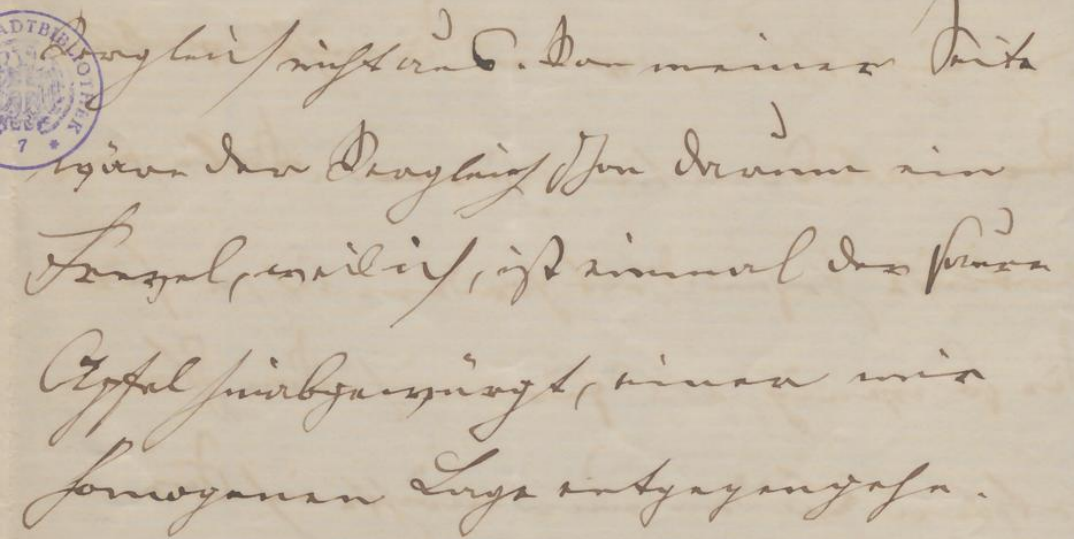 Vergleich nicht aus. Von meiner Seite
wäre der Vergleich schon darum ein
Frevel, weil ich, ist einmal der saure
Apfel hinabgewürgt, einer mir
homogenen Lage entgegengehe.
ADTBIBLIOTHEK
7 *